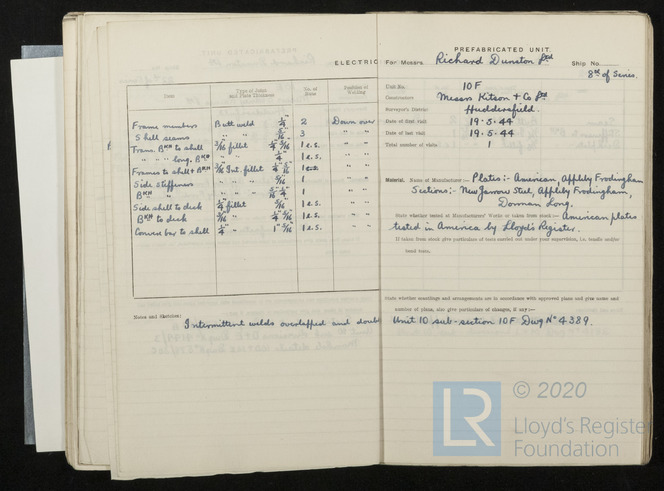 ELECTRIC
Item
Type of Joint and Plate Thickness
No. of Runs
Position of Welding
Frame members Butt weld 1/4" 2 Down over
Shell seams " " 5/16" 3 " "
Trans. BKH to shell 3/16 fillet 1/4" 5/16" 1 e.s. " "
" " " long. BKH " " 1/4" 1 e.s. " "
Frames to shell + BKH 3/16 Int. fillet 1/4" 5/16" " "
Side stiffeners " " " 5/16" 1 " "
BKH " " " " 1 " "
Side shell to deck 1/4" fillet 5/16" 1 e.s. " "
BKH to deck 3/16 " 1/4" 5/16" 1 e.s. " "
Convex bar to shell 1/4" " 1" 5/16 1 e.s. " "
Notes and Sketches:
Intermittent welds overlapped and doubl
PREFABRICATED UNIT.
For Messrs. Richard Dunston Ltd Ship No.
8th of Series.
Unit No. 10F
Constructors Messrs Kitson & Co Ltd
Surveyor's District Huddersfield
Date of first visit 19.5.44
Date of last visit 19.5.44
Total number of visits 1
Material. Name of Manufacturer:— Plates:- American, Appleby Frodingham
Sections:- New Jarrow Steel, Appleby Frodingham,
Dorman Long.
State whether tested at Manufacturers' Works or taken from stock:— American plates
tested in America by Lloyd's Register.
If taken from stock give particulars of tests carried out under your supervision, i.e. tensile and/or
bend tests.
State whether scantlings and arrangements are in accordance with approved plans and give name and
number of plans, also give particulars of changes, if any:—
Unit 10 sub-section 10F Dwg No 4389.
© 2020
LR
Lloyd's Register
Foundation